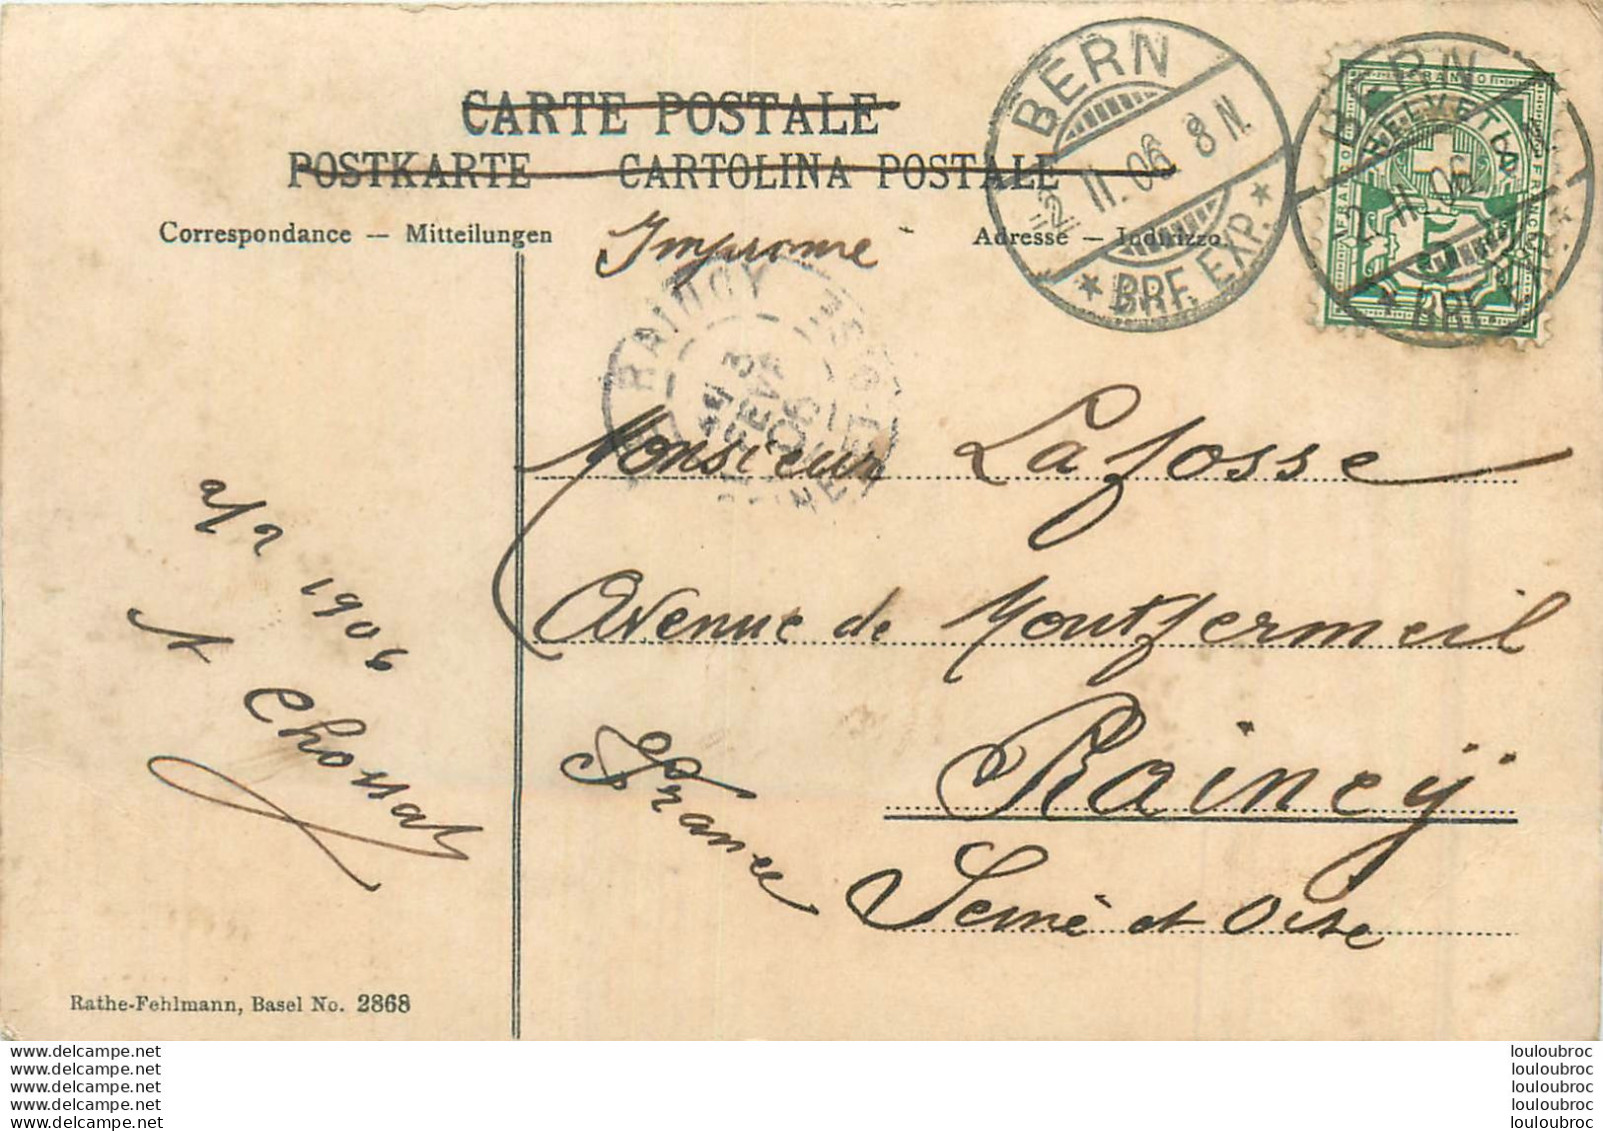 CARTE POSTALE
POSTKARTE CARTOLINA POSTALE
Correspondance — Mitteilungen
Adresse — Indirizzo.
Imprimé
BERN
2. II. 06. 8 N.
* BRF. EXP. *
BERN
2. II. 06.
* BRF. EXP. *
FRANCO
HELVETIA
5
RAINCY
3
FEVR
06
Monsieur Lafosse
Avenue de Montfermeil
Raincÿ
Seine et Oise
France
2/2 1906
A Chossat
Rathe-Fehlmann, Basel No. 2868
www.delcampe.net
www.delcampe.net
www.delcampe.net
www.delcampe.net
www.delcampe.net
louloubroc
louloubroc
louloubroc
louloubroc
louloubroc